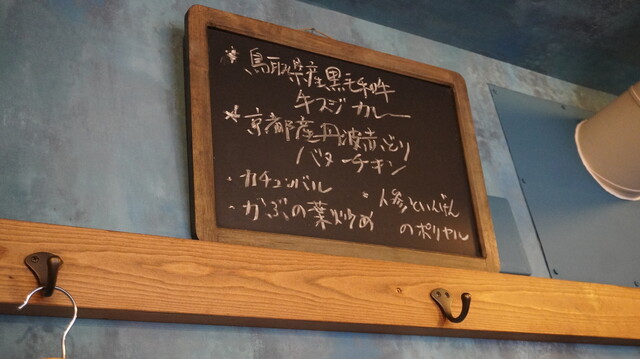 * 鳥取県産黒毛和牛
牛スジカレー
* 京都産丹波赤どり
バターチキン
・カチュンバル
・人参といんげん
のポリヤル
・かぶの葉炒め